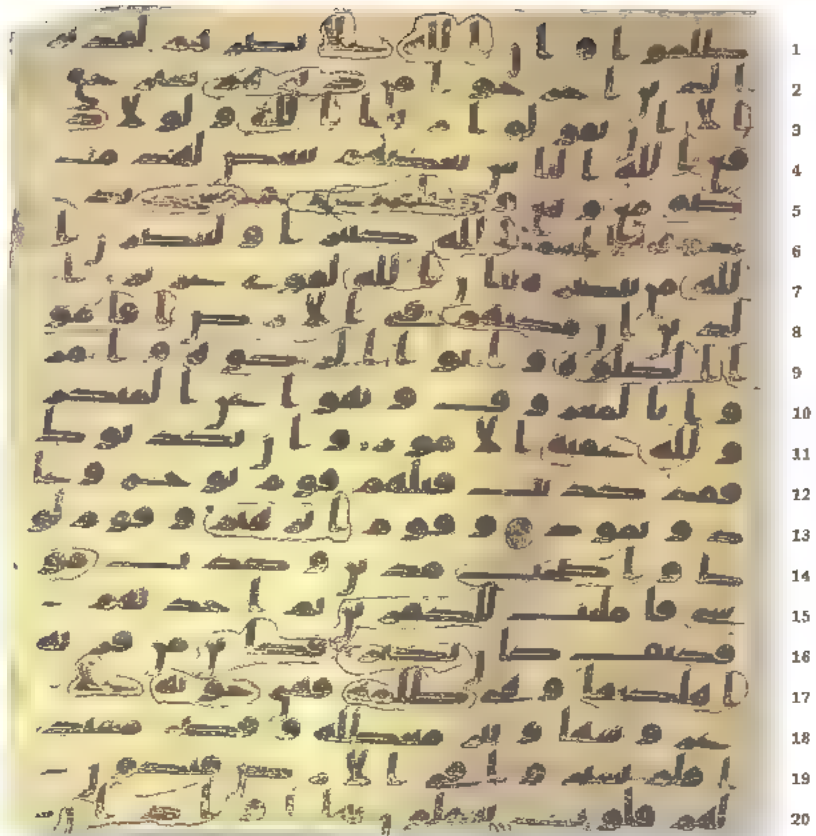 ظلموا وان الله على نصرهم لقدير 1
الذين اخرجوا من ديرهم بغير حق 2
الا ان يقولوا ربنا الله ولولا د 3
فع الله الناس بعضهم ببعض لهدمت 4
صومع وبيع وصلوت ومسجد يذ 5
كر فيها اسم الله كثيرا ولينصرن ا 6
لله من ينصره ان الله لقوى عزيز ا 7
لذين ان مكنهم فى الارض اقامو 8
ا الصلوه واتوا الزكوه وامر 9
وا بالمعروف ونهوا عن المنكر 10
ولله عقبه الامور وان يكذبوك 11
فقد كذبت قبلهم قوم نوح وعا 12
د وثمود وقوم ابرهيم وقوم لو 13
ط واصحب مدين وكذب مو 14
سى فامليت للكفرين ثم اخذتهم 15
فكيف كان نكير فكاين من قريه 16
اهلكنها وهى ظلمه فهى خاويه على 17
عروشها وبير معطله وقصر مشيد 18
افلم يسيروا فى الارض فتكون 19
لهم قلوب يعقلون بها او اذان 20